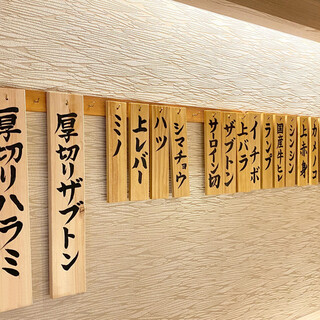 カメノコ
上赤身
シンシン
国産牛ヒレ
ランプ
イチボ
上バラ
ザブトン
サーロイン切
シマチョウ
ハツ
上レバー
ミノ
厚切りザブトン
厚切りハラミ